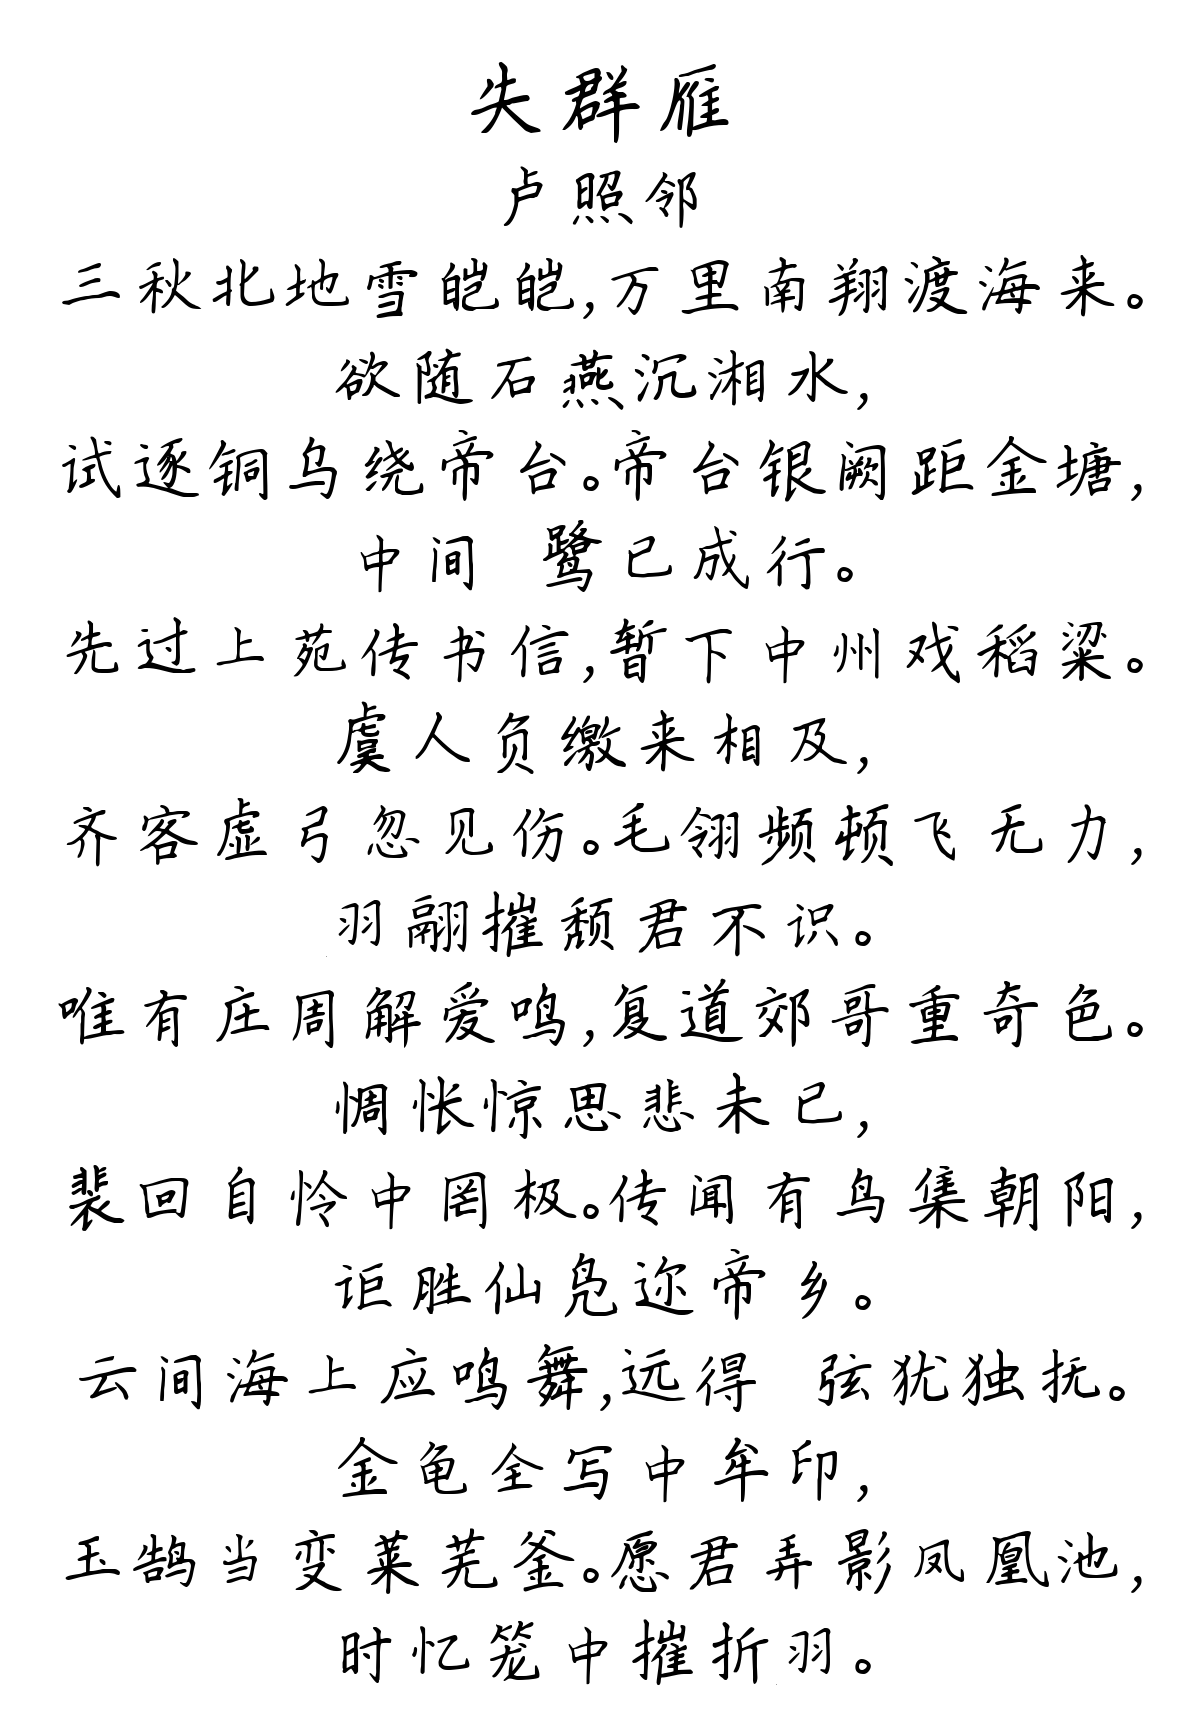 失群雁
卢照邻
三秋北地雪皑皑,万里南翔渡海来。
欲随石燕沉湘水,
试逐铜乌绕帝台。帝台银阙距金塘,
中间 鹭已成行。
先过上苑传书信,暂下中州戏稻粱。
虞人负缴来相及,
齐客虚弓忽见伤。毛翎频顿飞无力,
羽翮摧颓君不识。
唯有庄周解爱鸣,复道郊哥重奇色。
惆怅惊思悲未已,
裴回自怜中罔极。传闻有鸟集朝阳,
讵胜仙凫迩帝乡。
云间海上应鸣舞,远得 弦犹独抚。
金龟全写中牟印,
玉鹄当变莱芜釜。愿君弄影凤凰池,
时忆笼中摧折羽。